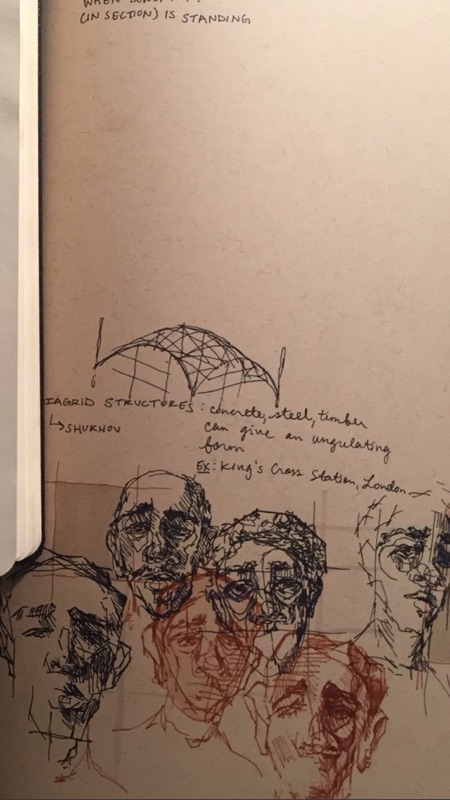 (IN SECTION) IS STANDING
IAGRID STRUCTURES: concrete, steel, timber
↳ SHUKHOV
can give an ungulating
form
EX: King's Cross Station, London